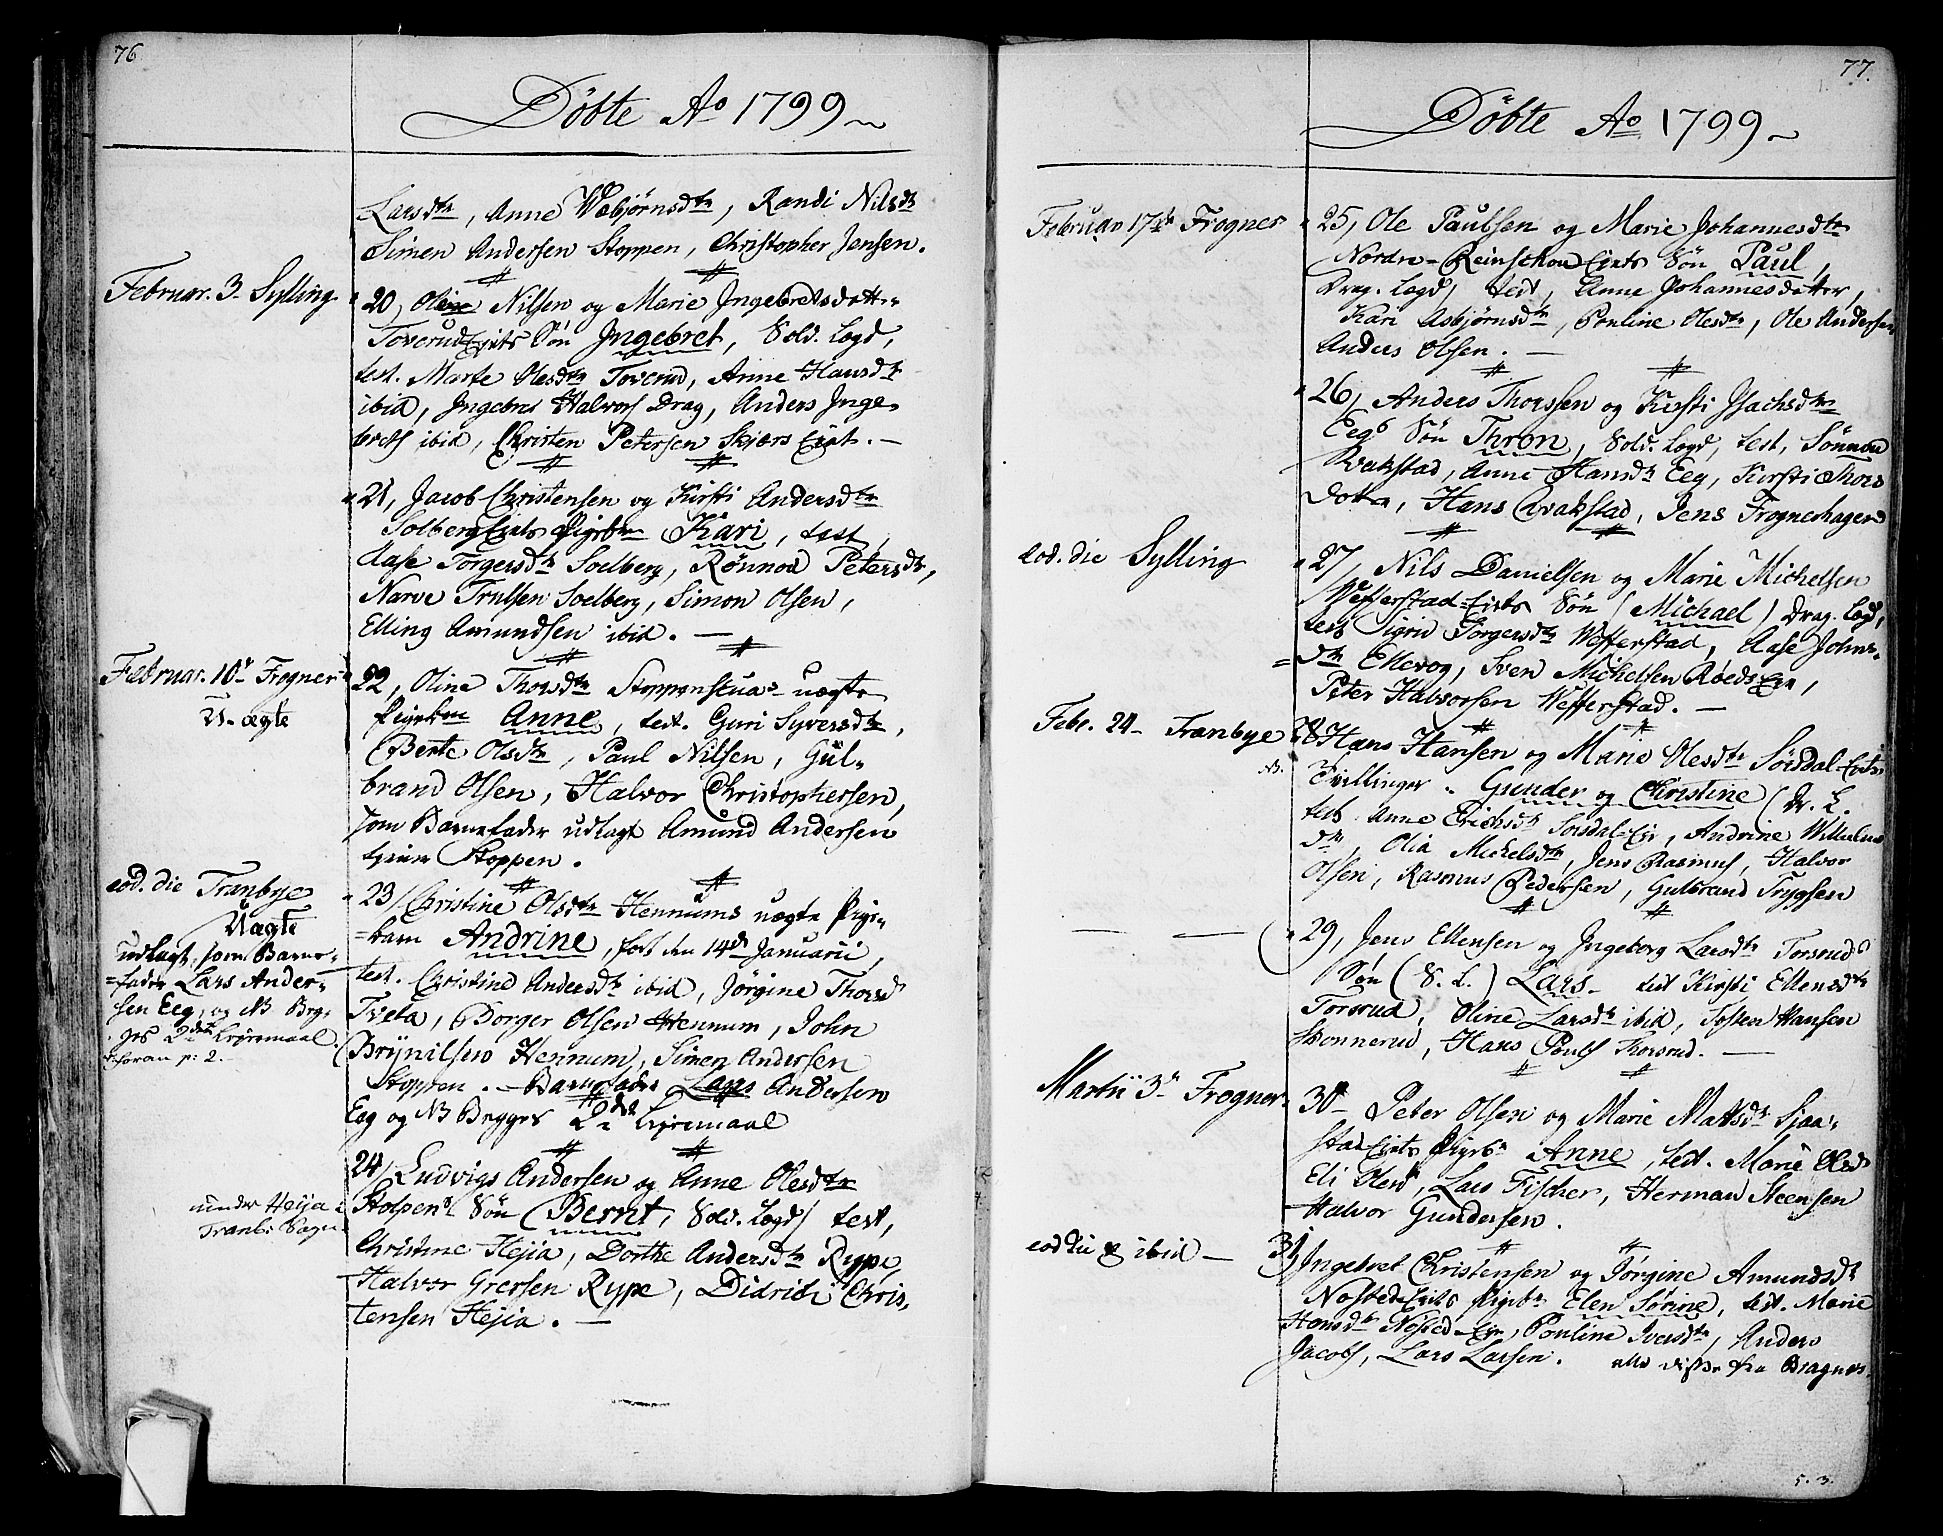 76
Döbte Ao 1799
Larsdtr, Anne Webjørnsdtr, Randi Nilsdtr
Simen Andersen Stoppen, Christopher Jensen.
Februar. 3 Sylling
20, Nilsen og Marie Ingebretsdatter
Toverud Eiets Søn Ingebret, Sold. Legd,
test. Marte Olesdtr Toverud, Anne Hansdtr
ibid, Ingebret Halvors Drag, Anders Inge-
brets ibid, Christen Petersen Skjærs Eiet.
21, Jacob Christensen og Kirsti Andersdtr
Solberg Eiets Pigebn Kari, test,
Aase Torgersdtr Soelberg, Rønnod Petersdtr,
Narve Trulsen Soelberg, Simon Olsen,
Elling Amundsen ibid.
Februar. 10 Frogner
U-ægte
22, Oline Thorsdtr Stoppenstua uægte
Anne, test. Guri Syversdtr,
Berte Olsdtr, Paul Nilsen, Gul-
brand Olsen, Halvor Christophersen,
som Barnefader udlagt Amund Andersen
Stoppen.
eod. die Tranbye
Uægte
udlagt, som Barne-
fader Lars Ander-
sen Eeg, og NB Beg-
ges 2det Lejermaal.
foran p: 2.
23, Christine Olsdtr Hennums uægte Pige-
barn Andrine, født den 14de Januarii,
test. Christine Andersdtr ibid, Jørgine Thorsd
Tveta, Borger Olsen Hennum, John
Brynilsen Hennum, Simen Andersen
Stoppen. Barnefader Lars Andersen
Eeg og NB Begges 2det Lejermaal
under Hejia i
Tranb: Sogn
24, Ludvigs Andersen og Anne Olesdtr
Stolpens Søn Bernt, Sold. Legd, test,
Christine Hejia, Dorthe Andersdtr Rype,
Halvor Grersen Rype, Didrich Chris-
tensen Hejia.
77.
Döbte Ao 1799
Februar 17de Frogner
25, Ole Paulsen og Marie Johannesdtr
Nordre Reinskou Eiets Søn Paul,
Drag. Legd, test, Anne Johannesdatter,
Kari Asbjørnsdtr, Pouline Olesdtr, Ole Andersen
Anders Olsen.
26, Anders Thorssen og Kirsti Isachsdtr
Eegs Søn Thron, Sold. Legd, test, Sønnou
Qvakstad, Anne Hansdtr Eeg, Kirsti Thors
dotter, Hans Qvakstad, Jens Frognerhagen
eod. die Sylling
27, Nils Danielsen og Marie Michelsen
Wefferstad-Eiets Søn (Michael) Drag. Legd,
test Sigrid Torgersdtr Wefferstad, Aase Johns-
dtr Ellevog, Sven Michelsen Røeds Eie,
Peter Halvorsen Wefferstad.
Febr. 24 Tranbye
28, Hans Hansen og Marie Olesdtr Sørsdal-Eiets
Tvillinger Gunder og Christine (Dr. L.
test Anne Erichsdtr Sørsdal-Eie, Andrine Willums
dtr, Olia Mickelsdtr, Jens Rasmus, Halvor
Olsen, Rasmus Pedersen, Gulbrand Trygsen
29, Jens Ellensen og Ingeborg Larsdtr Torsruds
Søn (S. L.) Lars test Kirsti Ellensdtr
Torsrud, Oline Larsdtr ibid, Tosten Hansen
Skonnerud, Hans Pouls Thorsrud.
Martii 3 Frogner
30 Peter Olsen og Marie Matsdtr Sjaa-
stad Eiets Pigebn Anne, test. Marie Olesd
Eli Olesd, Lars Fischer, Herman Steensen
Halvor Gundersen.
eod die ibid
31, Ingebret Christensen og Jørgine Amundsdtr
Nøsted Eiets Pigebn Elen Sørine, test. Marie
Hansdtr Nøsted Eie, Pouline Iversdtr, Anders
Jacobs, Lars Larsen. alle disse fra Bragnes.
5. 3.